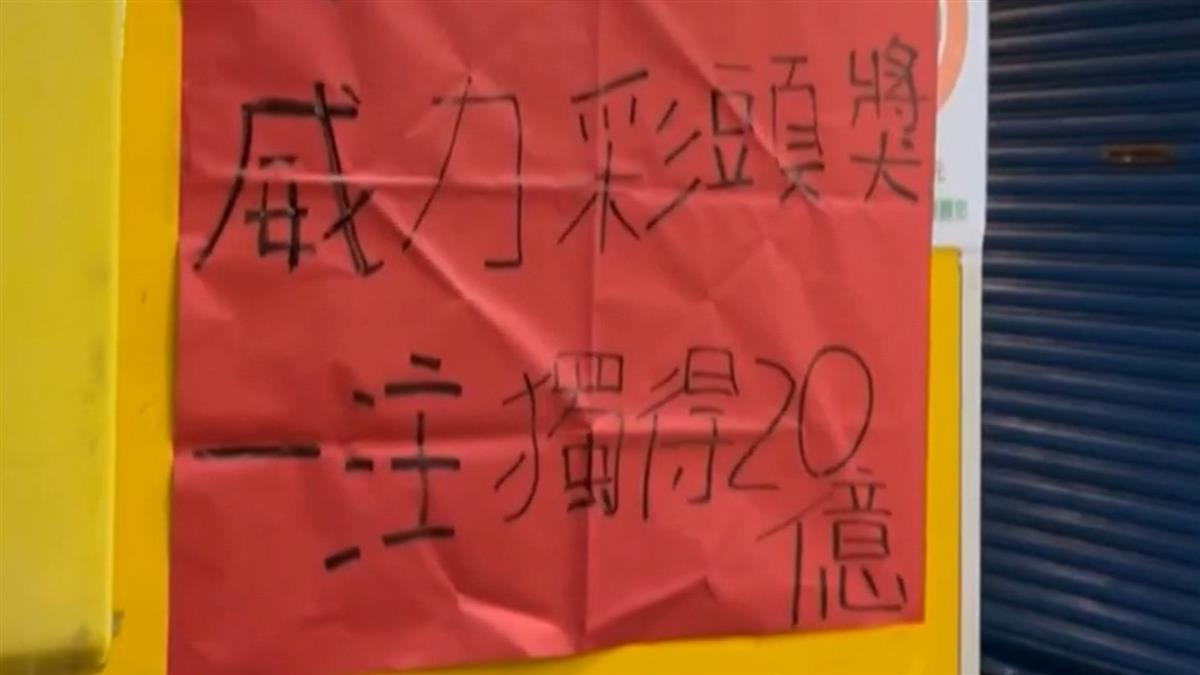 威力彩頭獎
一注獨得20億